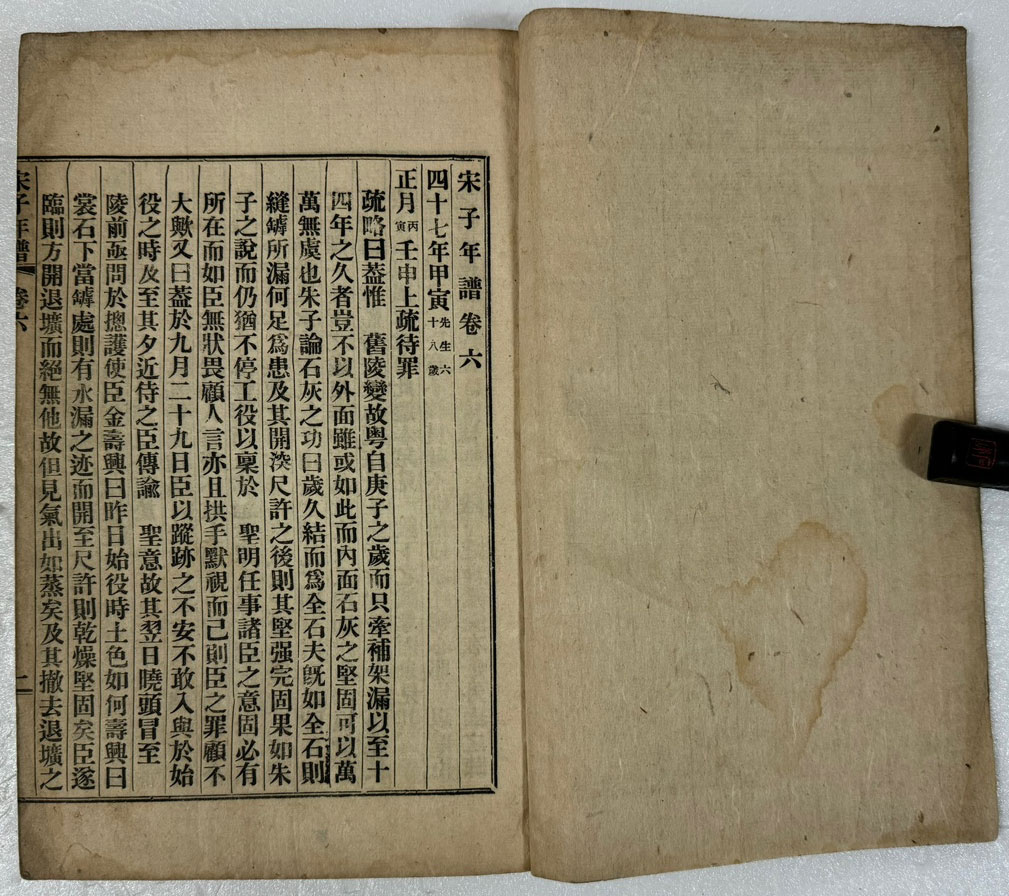 宋子年譜卷六
四十七年甲寅先生六十八歲
正月丙寅壬申上疏待罪
疏略曰蓋惟 舊陵變故粤自庚子之歲而只牽補架漏以至十
四年之久者豈不以外面雖或如此而內面石灰之堅固可以萬
萬無虞也朱子論石灰之功曰歲久結而爲全石夫旣如全石則
縫罅所漏何足爲患及其開深尺許之後則其堅强完固果如朱
子之說而仍猶不停工役以稟於 聖明任事諸臣之意固必有
所在而如臣無狀畏顧人言亦且拱手默視而已則臣之罪顧不
大歟又曰蓋於九月二十九日臣以蹤跡之不安不敢入與於始
役之時及至其夕近侍之臣傳諭 聖意故其翌日曉頭冒至
陵前亟問於摠護使臣金壽興曰昨日始役時土色如何壽興曰
裳石下當罅處則有水漏之迹而開至尺許則乾燥堅固矣臣遂
臨則方開退壙而絕無他故但見氣出如蒸矣及其撤去退壙之
宋子年譜 卷六 一